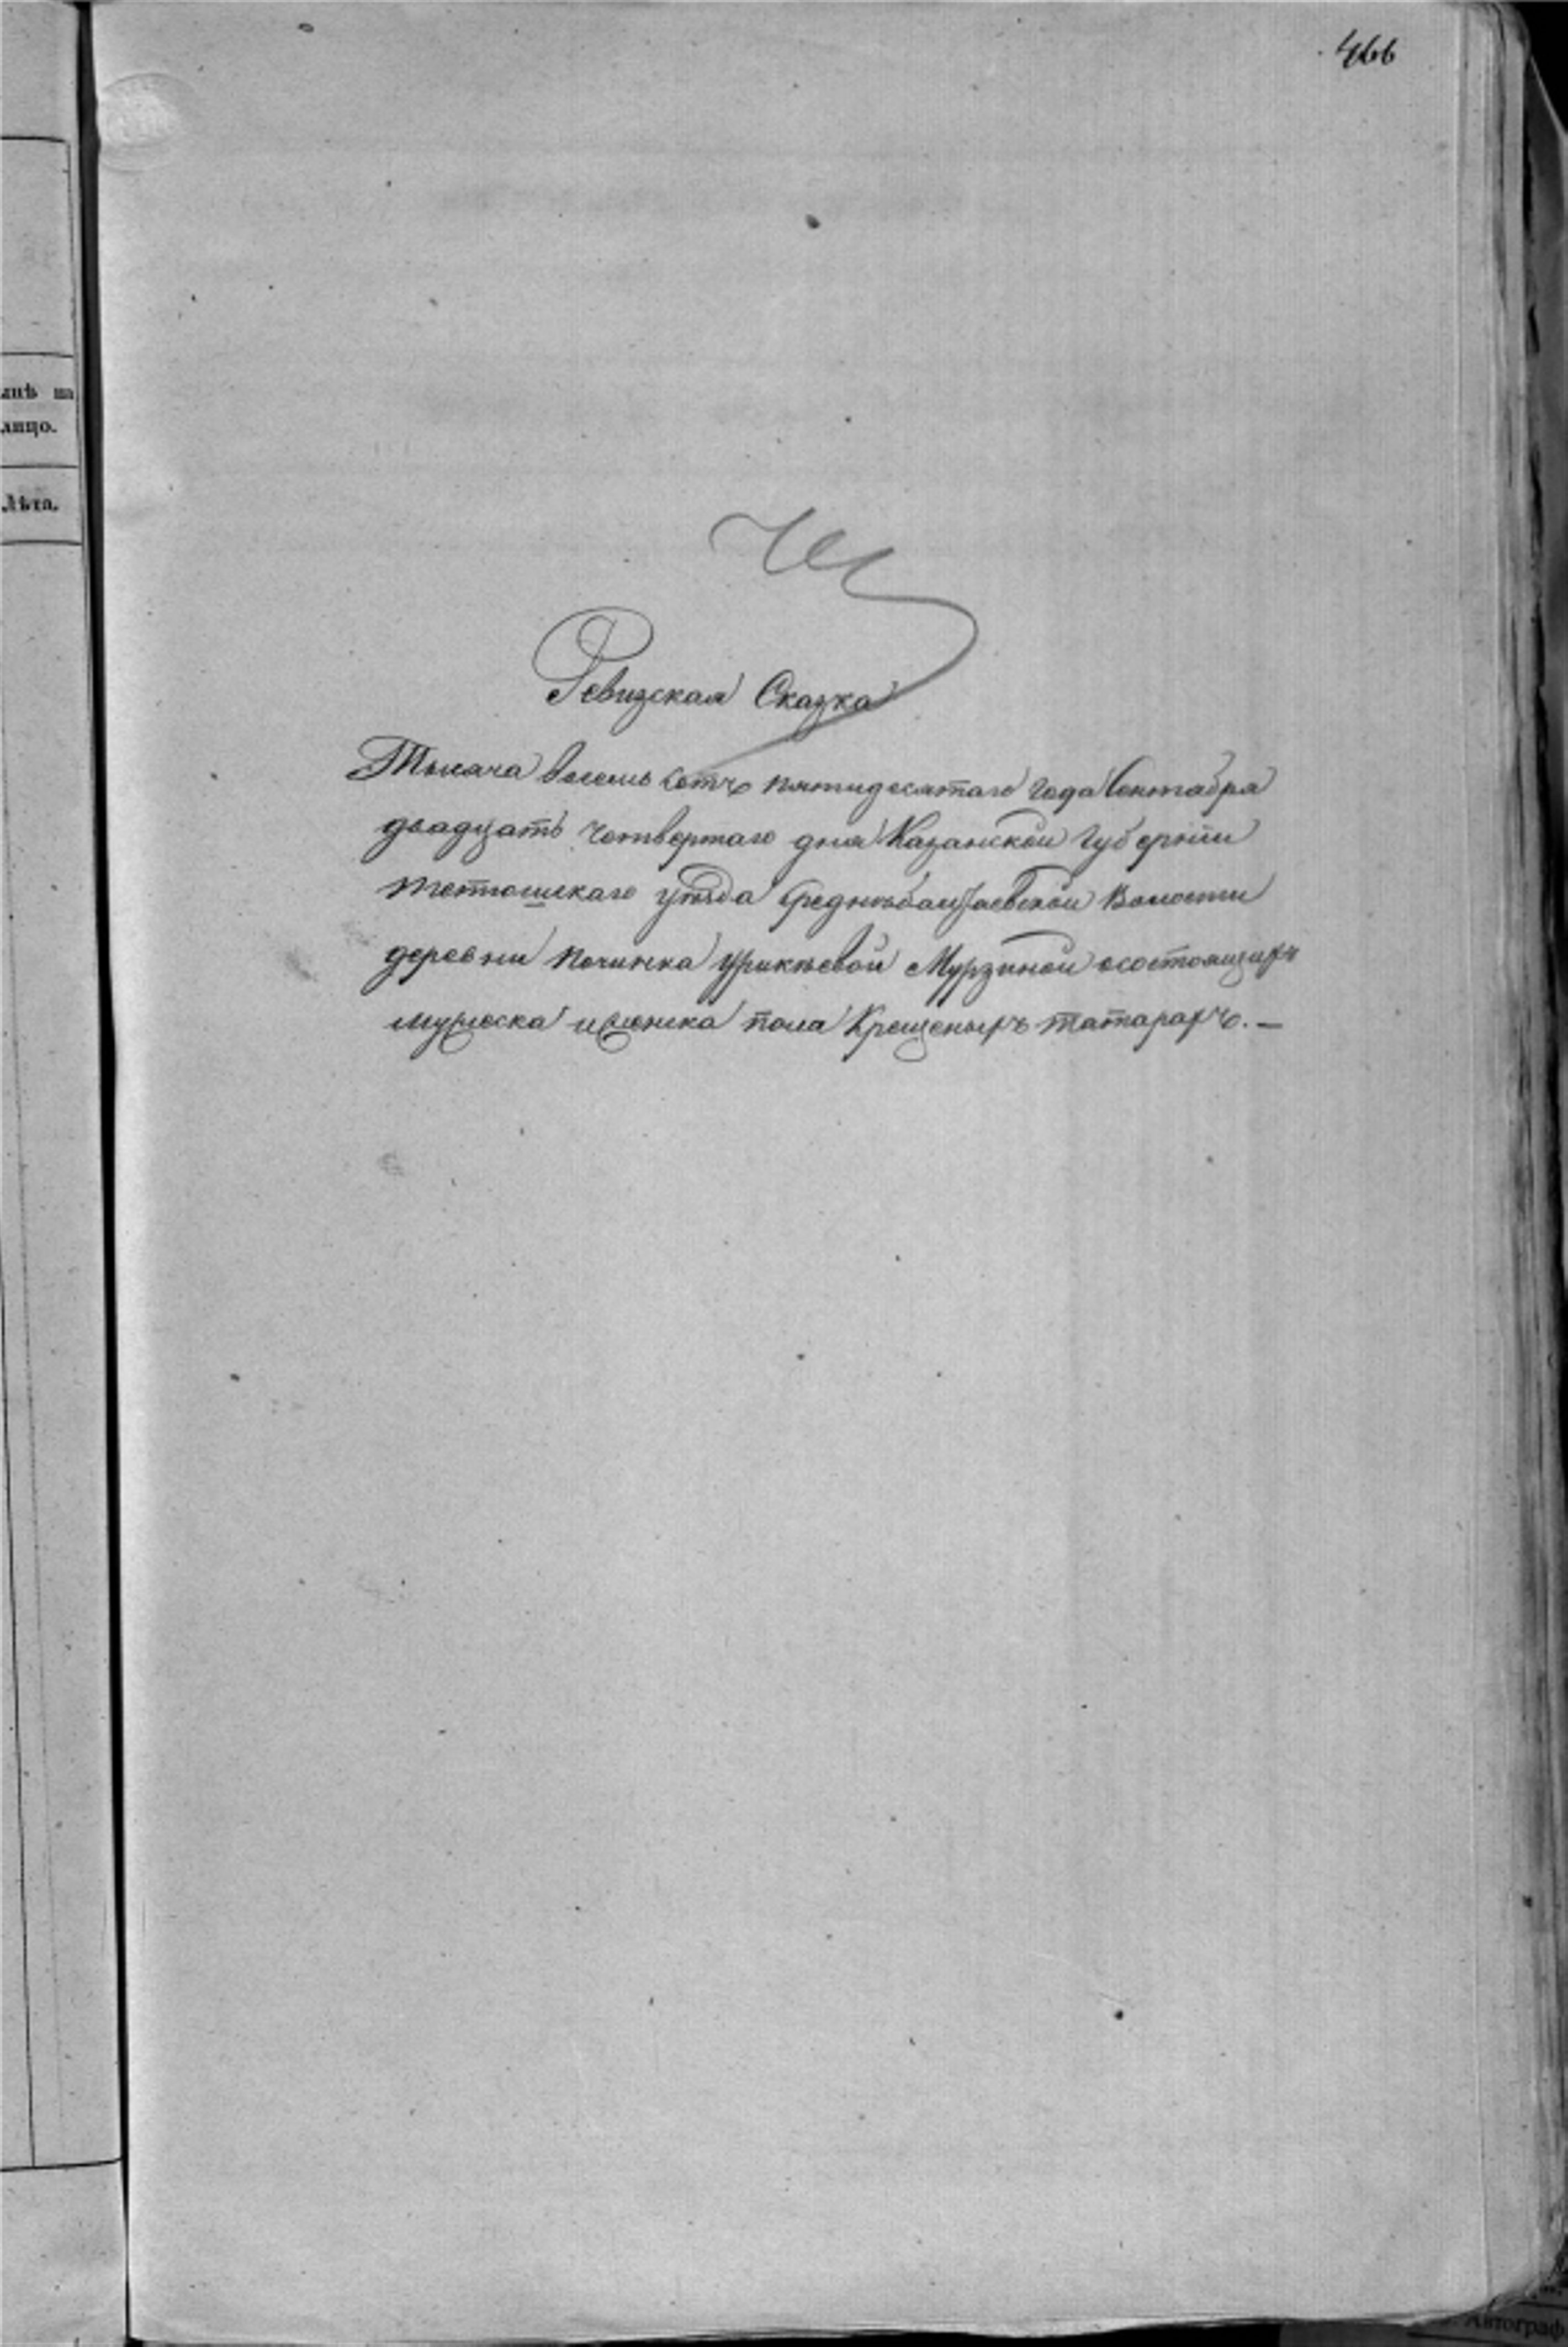 466
лнѣ на
лицо.
Лѣта.
Ревизская Сказка
Тысяча восемь сотъ пятидесятаго года Сентабра
двадцать четвертаго дня Казанской Губернiи
тетюшскаго уѣзда Средне Волости
деревни починка Мурзиной осостоящихъ
мужеска иженска пола Крещеныхъ татарахъ. —
Автограф